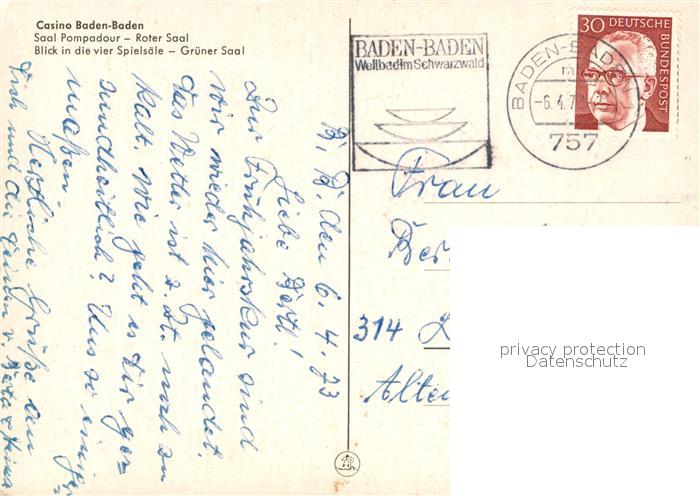 Casino Baden-Baden
Saal Pompadour – Roter Saal
Blick in die vier Spielsäle – Grüner Saal
B. B. den 6.4.73
Liebe !
Zur Frühjahrskur sind
wir wieder hier gelandet.
Das Wetter ist z. Zt. noch zu
kalt. Wie geht es Dir ge-
sundheitlich? Uns so einiger-
maßen.
Herzliche Grüße an
Dich und die
BADEN-BADEN
Weltbad im Schwarzwald
BADEN-BADEN
-6.4.73
757
30 DEUTSCHE
BUNDESPOST
Frau
314
privacy protection
Datenschutz